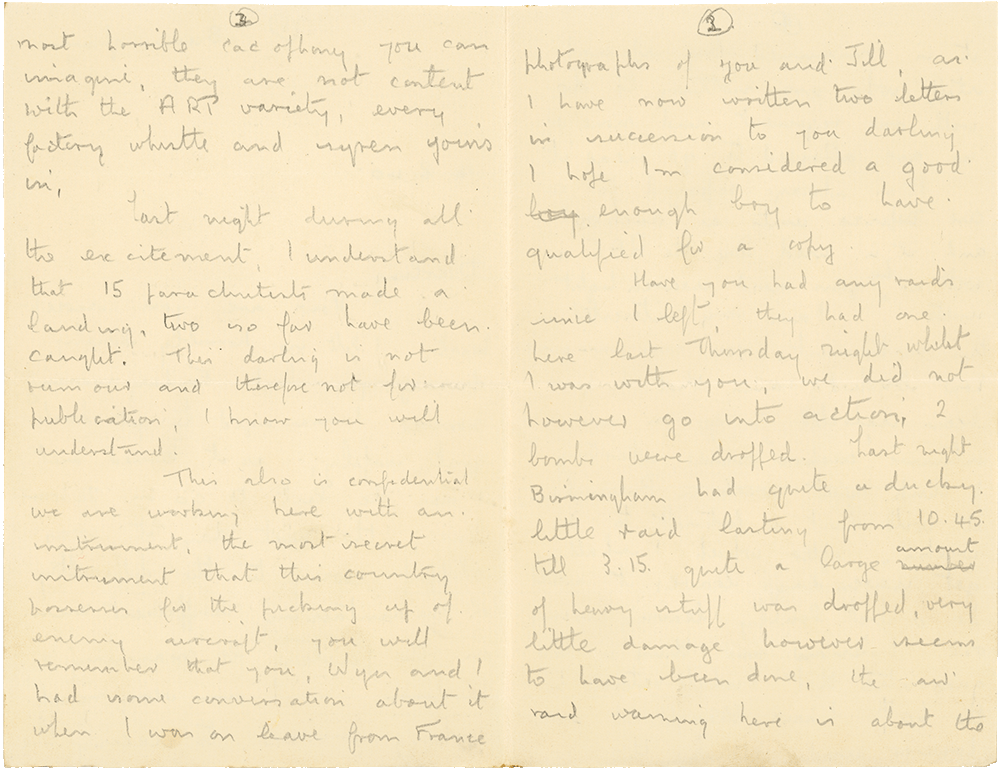 3
most horrible cacophony you can
imagine, they are not content
with the ARP variety, every
factory whistle and syren joins
in,
Last night during all
the excitement, I understand
that 15 parachutists made a
landing, two so far have been
caught. This darling is not
rumour and therefore not for
publication, I know you will
understand.
This also is confidential
we are working here with an
instrument, the most secret
instrument that this country
possesses for the picking up of
enemy aircraft, you will
remember that you, Wyn and I
had some conversation about it
when I was on leave from France
3
photographs of you and Jill, as
I have now written two letters
in succession to you darling
I hope I'm considered a good
boy enough boy to have
qualified for a copy.
Have you had any raids
since I left, they had one
here last Thursday night whilst
I was with you, we did not
however go into action, 2
bombs were dropped. Last night
Birmingham had quite a ducky
little raid lasting from 10.45.
till 3.15. quite a large number amount
of heavy stuff was dropped, very
little damage however seems
to have been done, the air
raid warning here is about the